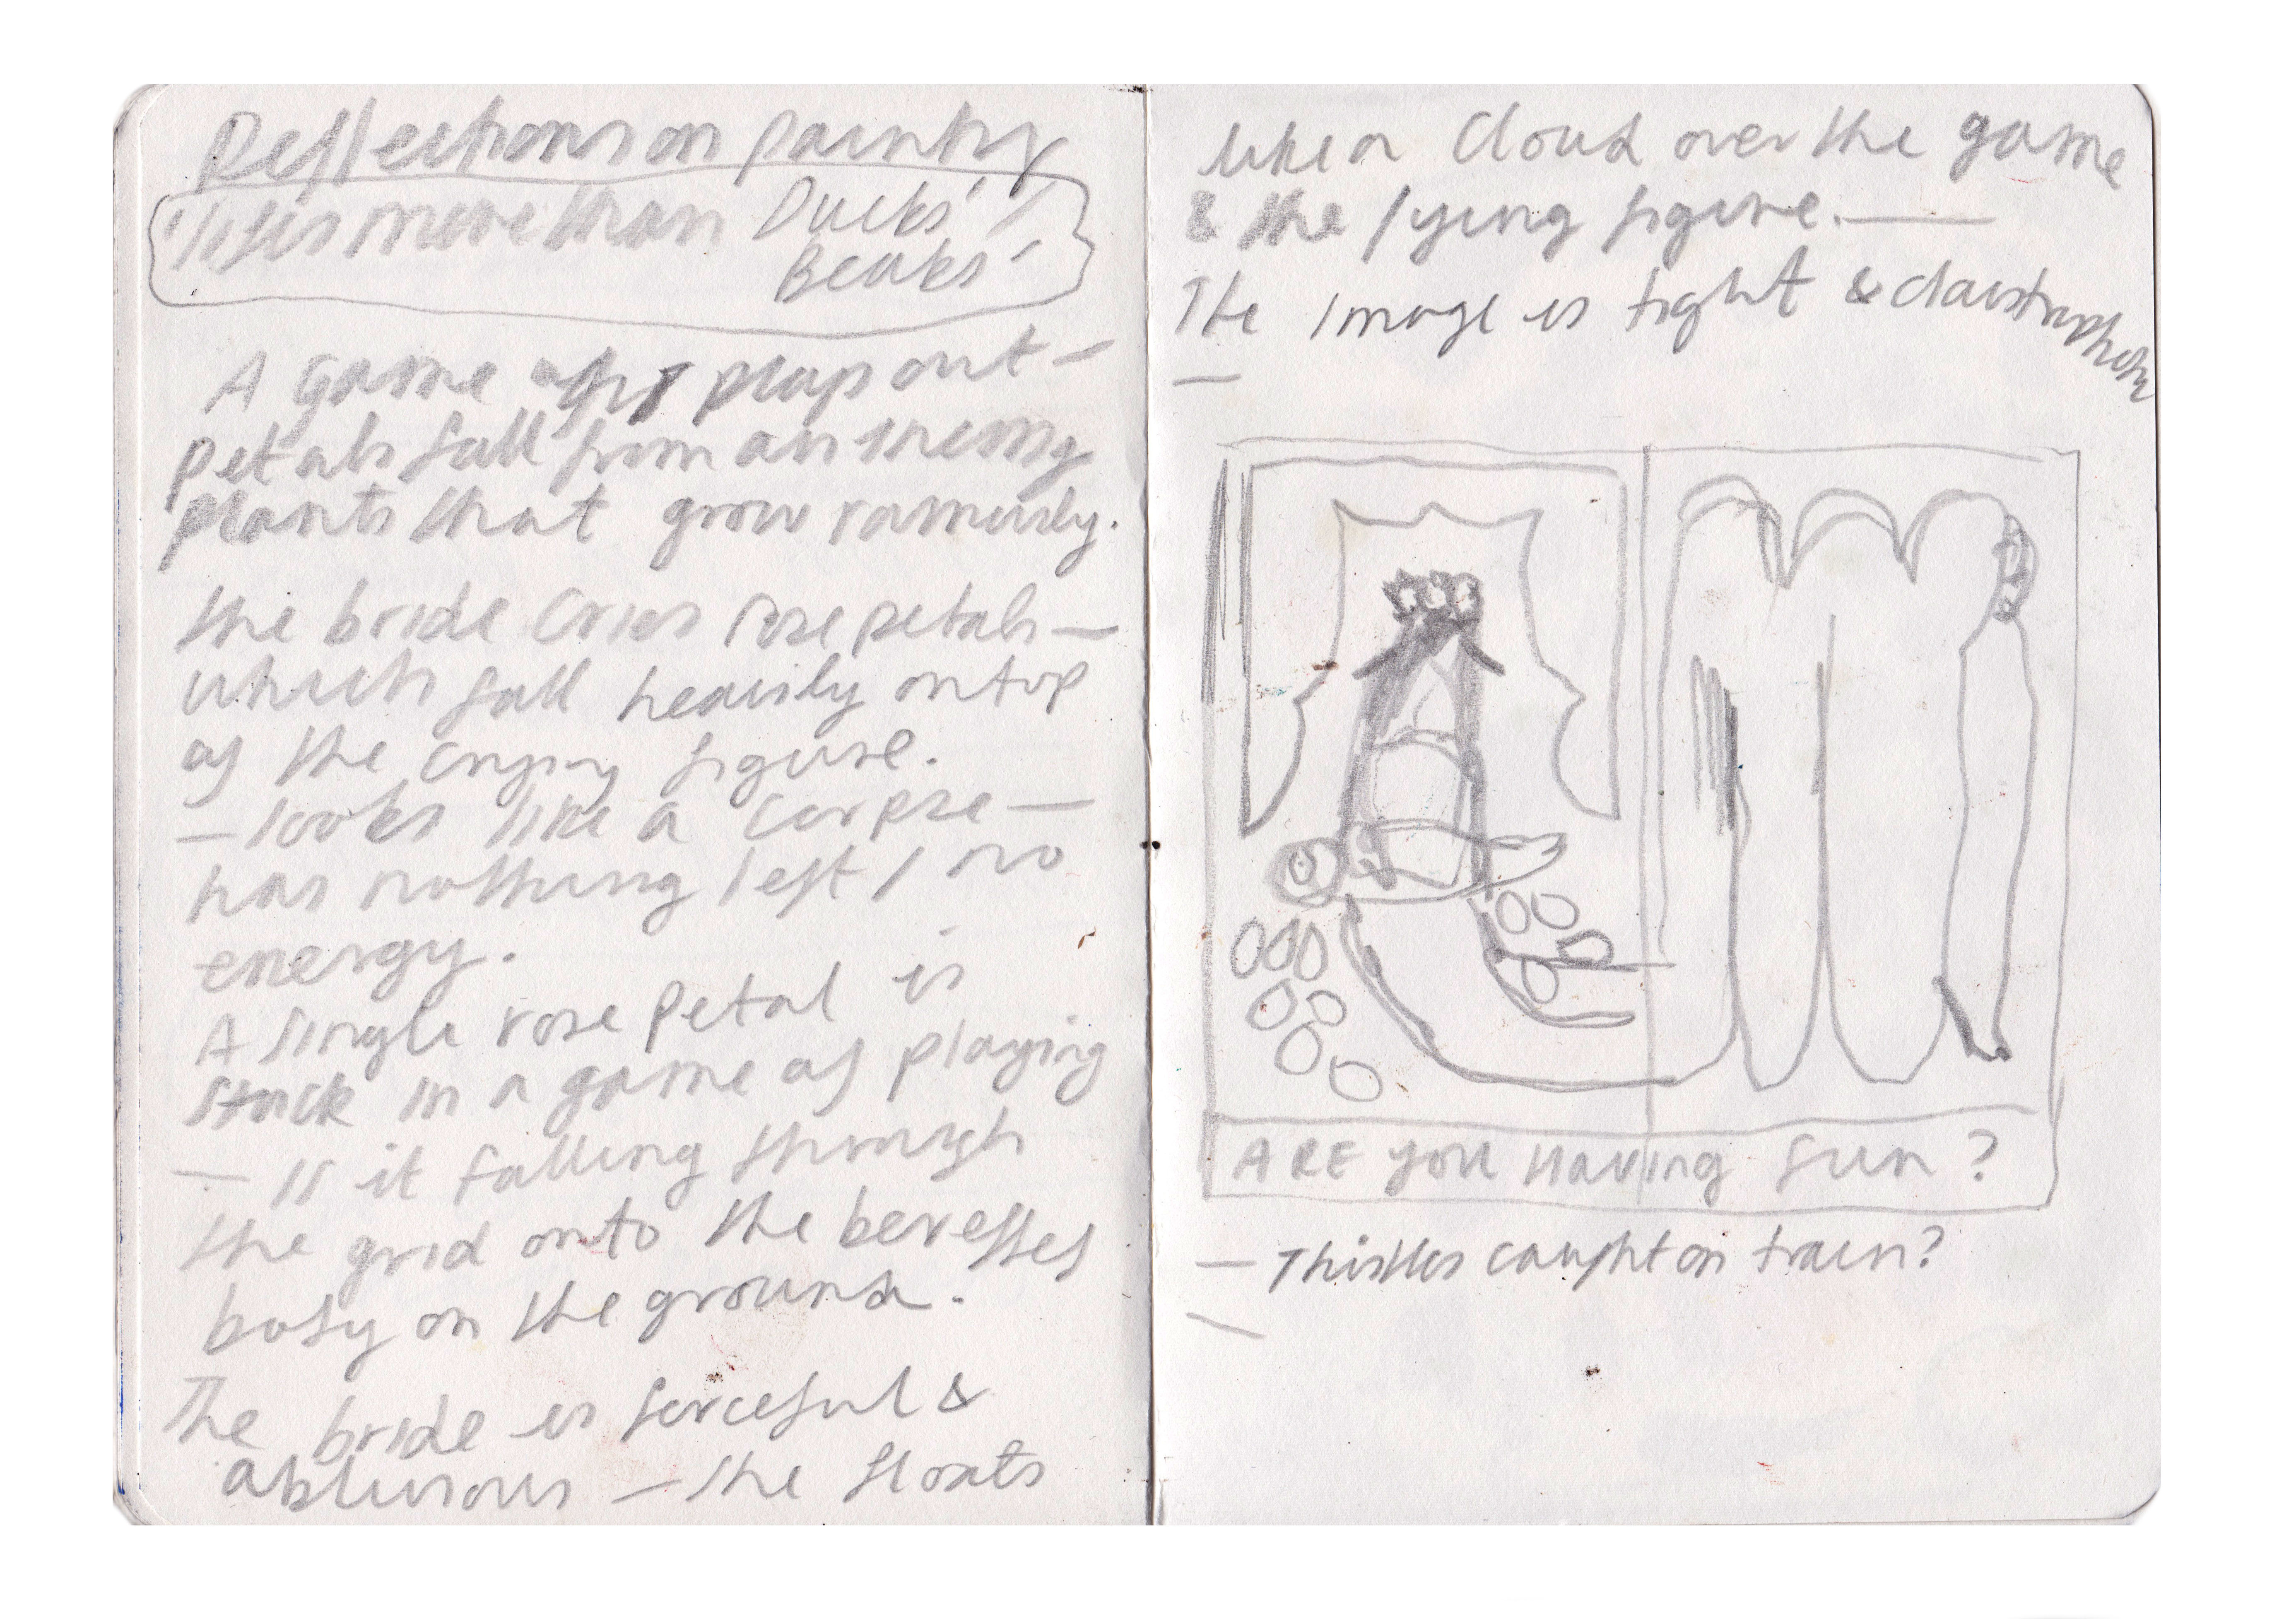 Reflections on painting
more than Ducks'
Beaks'
A game plays out —
petals fall from
plants that grow
the bride cries rose petals —
which fall heavily on top
of the crying figure.
— looks like a corpse —
has nothing left / no
energy.
A single rose petal is
stuck in a game of playing
— Is it falling through
the grid onto the
body on the ground.
The bride is forceful &
— she floats
like a cloud over the game
& the lying figure. —
The image is tight &
—
ARE YOU HAVING FUN?
— Thistles caught on train?
—